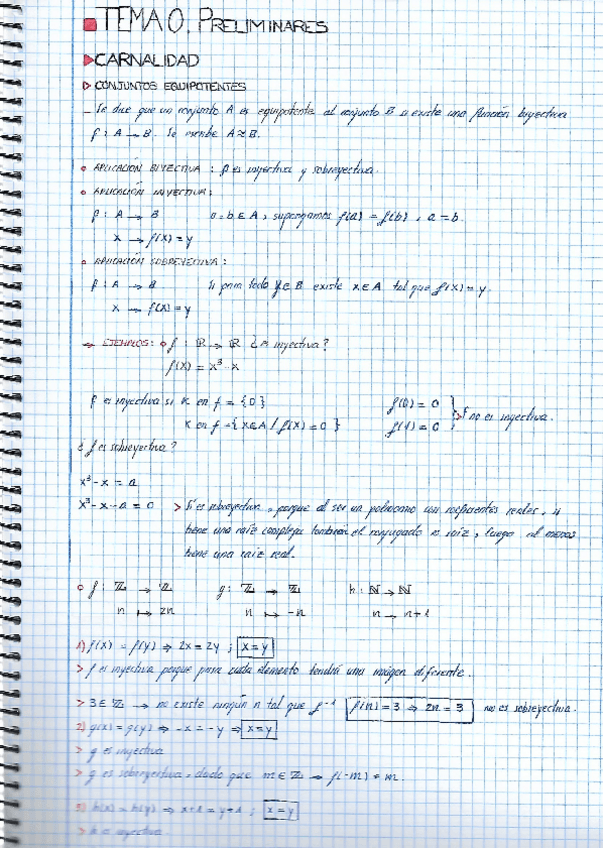 TEMA 0. PRELIMINARES
CARNALIDAD
CONJUNTOS EQUIPOTENTES
_ Se dice que un conjunto A es equipotente al conjunto B si existe una función biyectiva
f : A → B. Se escribe A ≈ B.
• APLICACIÓN BIYECTIVA : f es inyectiva y sobreyectiva.
• APLICACIÓN INYECTIVA :
f : A → B a, b ∈ A, supongamos f(a) = f(b), a = b.
x → f(x) = y
• APLICACIÓN SOBREYECTIVA :
f : A → B Si para todo y ∈ B existe x ∈ A tal que f(x) = y.
x → f(x) = y
→ EJEMPLOS: • f : ℝ → ℝ ¿Es inyectiva?
f(x) = x³ - x
f es inyectiva si K en f = {0} f(0) = 0
K en f = {x ∈ A / f(x) = 0} f(1) = 0 } > f no es inyectiva.
¿f es sobreyectiva?
x³ - x = a
x³ - x - a = 0 > Si es sobreyectiva, porque al ser un polinomio con coeficientes reales, si
tiene una raíz compleja también el conjugado es raíz, luego al menos
tiene una raíz real.
• f : ℤ → ℤ g : ℤ → ℤ h : ℕ → ℕ
n ↦ 2n n ↦ -n n → n+1
1) f(x) = f(y) ⇒ 2x = 2y ; x = y
> f es inyectiva porque para cada elemento tendrá una imagen diferente.
> 3 ∈ ℤ → no existe ningún n tal que f⁻¹ f(n) = 3 ⇒ 2n = 3 no es sobreyectiva.
2) g(x) = g(y) ⇒ -x = -y ⇒ x = y
> g es inyectiva
> g es sobreyectiva, dado que m ∈ ℤ → f(-m) = m.
3) h(x) = h(y) ⇒ x+1 = y+1 ; x = y
> h es inyectiva.